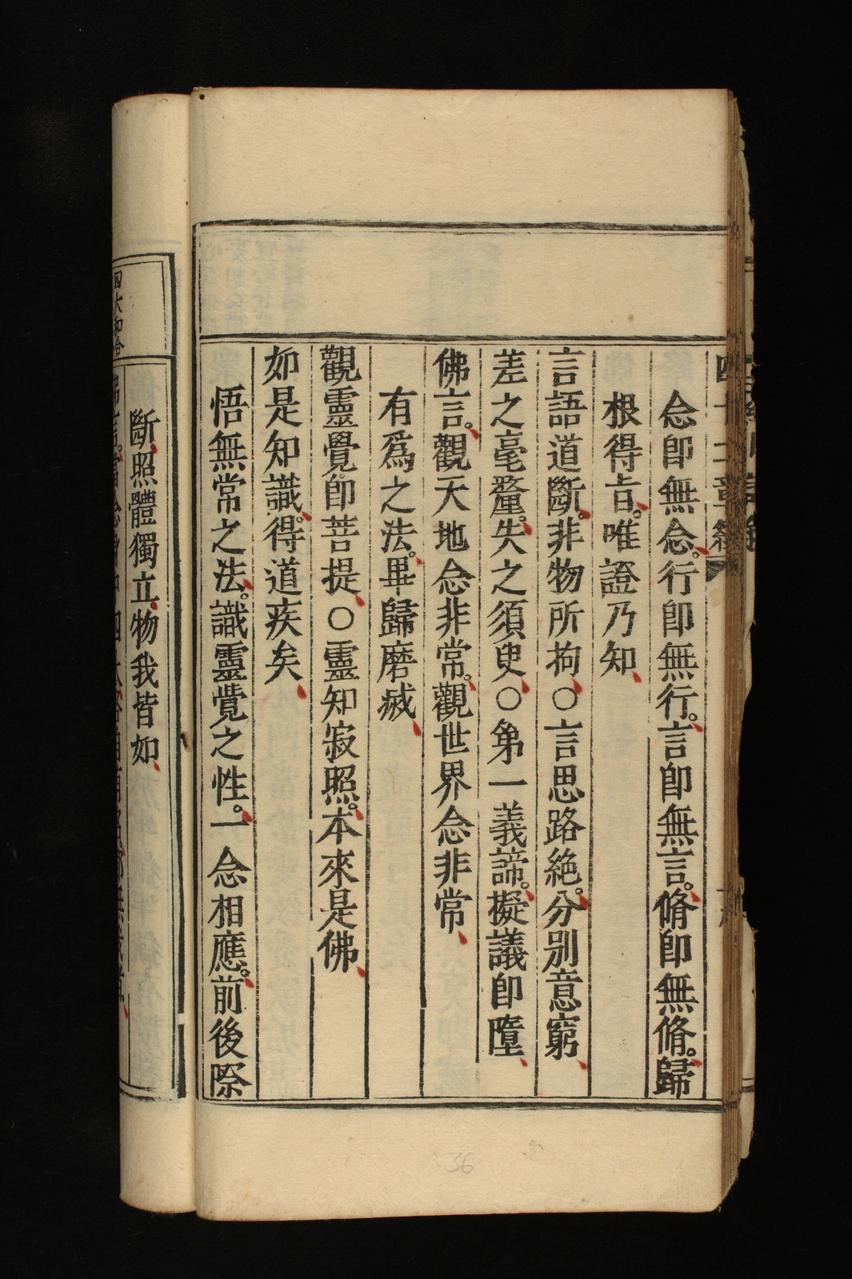 念即無念。行即無行。言即無言。脩即無脩。歸
根得旨。唯證乃知、
言語道斷、非物所拘、○言思路絕。分別意窮、
差之毫釐。失之須臾○第一義諦。擬議即墮、
佛言。觀天地念非常。觀世界念非常、
有爲之法。畢歸磨滅、
觀靈覺即菩提、○靈知寂照。本來是佛、
如是知識。得道疾矣、
悟無常之法。識靈覺之性。一念相應。前後際
斷、照體獨立、物我皆如、
四大和合
佛言。當念身中四大
36